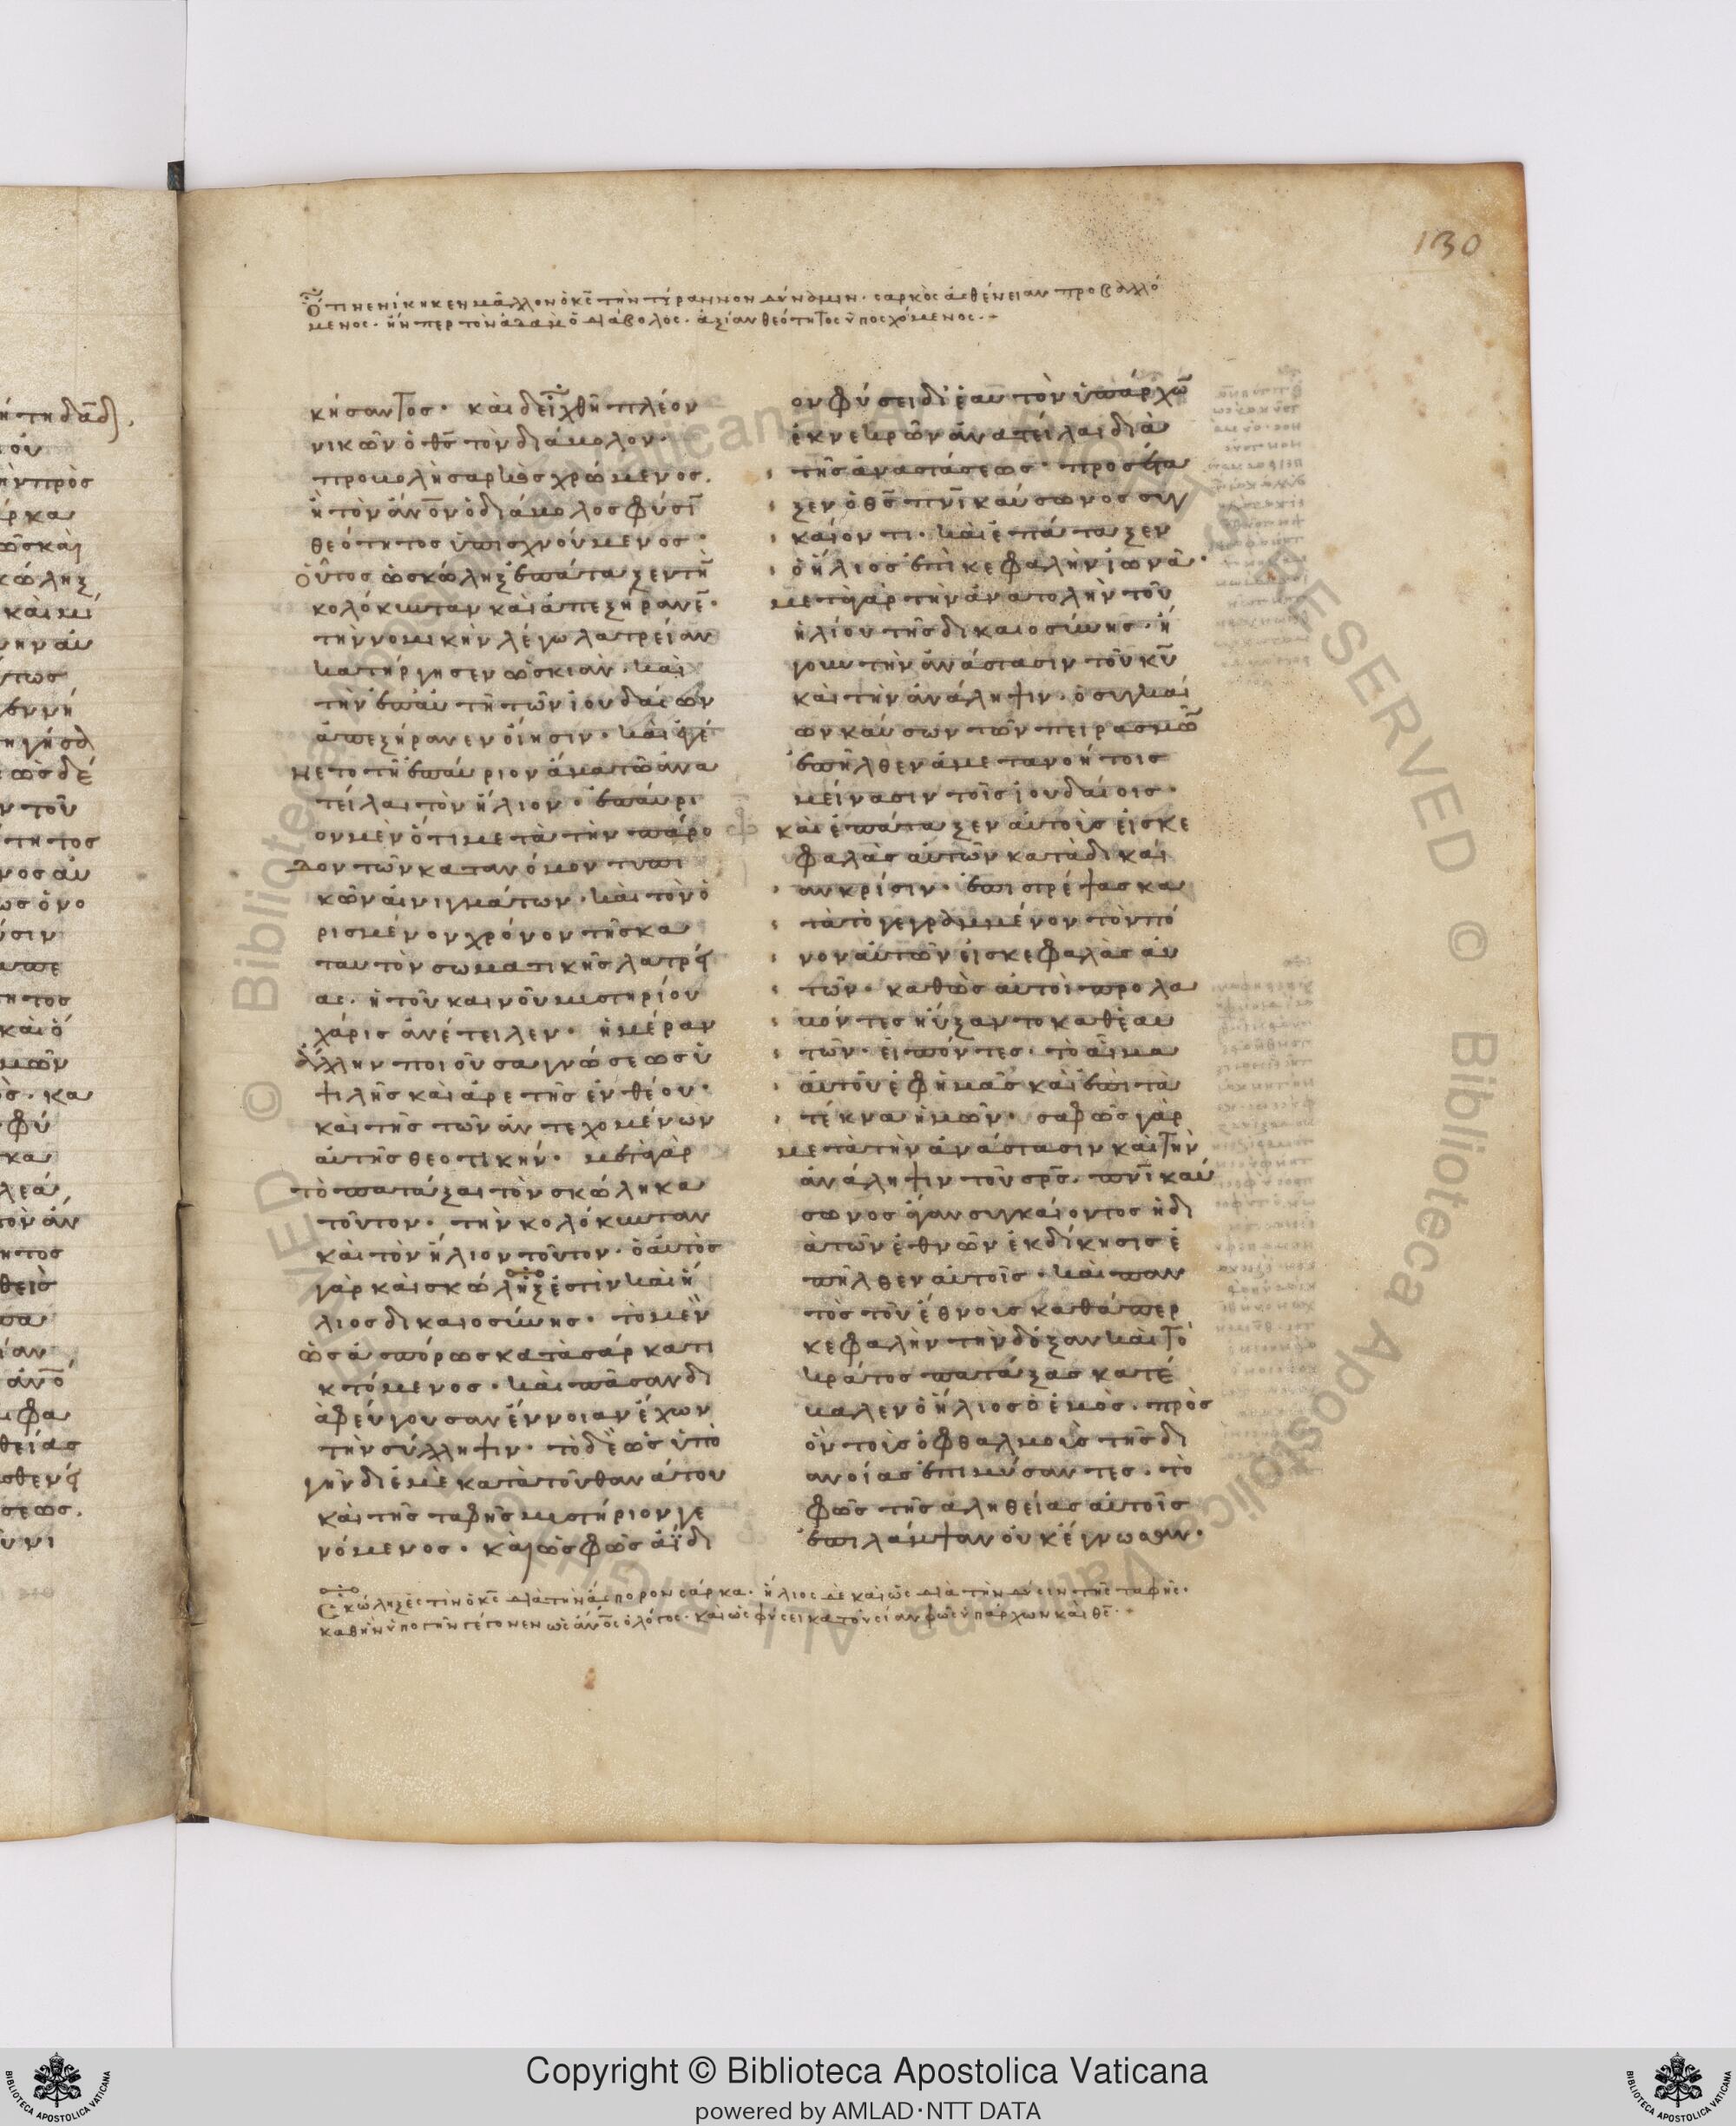 130
Ὅτι νενίκηκεν μᾶλλον ὁ κ̅ς̅ τὴν τύραννον δύναμιν· σαρκὸς ἀσθένειαν προβαλλό
μενος· ἤπερ τὸν ἀδὰμ ὁ διάβολος· ἀξίαν θεότητος ὑποσχόμενος·
κήσαντος· καὶ δειχθῆ πλέον
νικῶν ὁ θ̅ς̅ τὸν διάβολον·
προβολῆ σαρκὸς χρώμενος·
ἢ τὸν ἄν̅ο̅ν ὁ διάβολος φύσι̅
θεότητος ὑπισχνούμενος·
Οὗτος ὡς σκώληξ ἐπάταξεν τὴ̅
κολόκυνταν καὶ ἀπεξήρανε̅·
τὴν νομικὴν λέγω λατρείαν
κατήργησεν ὡς σκιὰν· καὶ
τὴν ἐπ' αὐτῆ τῶν ἰουδαίων
ἀπεξήρανεν οἴησιν· καὶ γέ
νετο τῆ ἐπαύριον ἅμα τῶ ἀνα
τεῖλαι τὸν ἥλιον· ἐπαύρι
ον μὲν ὅτι μετὰ τὴν πάρο
δον τῶν κατα νόμον τυπι
κῶν αἰνιγμάτων· καὶ τὸν ὁ
ρισμένον χρόνον τῆς κα
τ' αυτὸν σωματικῆς λατρεί
ας· ἡ τοῦ καινοῦ μυστηρίου
χάρις ἀνέτειλεν· ἡμέραν
ἄλλην ποιοῦσα γνώσεως ὑ
ψιλῆς καὶ ἀρετῆς ἐνθέου·
καὶ τῆς τῶν ἀντεχομένων
αὐτῆς θεοτικήν· μετὰ γὰρ
τὸ πατάξαι τὸν σκώληκα
τοῦτον· τὴν κολόκυνταν
καὶ τὸν ἥλιον τοῦτον· ὁ αὐτὸς
γὰρ καὶ σκώληξ ἐστὶν καὶ ἥ
λιος δικαιοσύνης· τὸ μὲν
ὡς ἀσπόρως κατὰ σάρκα τι
κτόμενος· καὶ πᾶσαν δι
αφεύγουσαν ἔννοιαν ἔχων
τὴν σύλληψιν· τὸ δὲ ὡς ὑπὸ
γῆν δι' ἐμὲ κατὰ τοῦ θανάτου
καὶ τῆς ταφῆς μυστήριον γε
νόμενος· καὶ ὡς φῶς ἀΐδι
ον φύσει δι' ἑαυτὸν ὑπάρχω̅
ἐκ νεκρῶν ἀνατεῖλαι διὰ
τῆς ἀναστάσεως· προσέτα
ξεν ὁ θ̅ς̅ πν̅ι καύσωνος συγ
καίοντι· καὶ ἐπάταξεν
ὁ ἥλιος ἐπὶ κεφαλὴν ἰωνᾶ·
μετὰ γὰρ τὴν ἀνατολὴν τοῦ
ἡλίου τῆς δικαιοσύνης· ἤ
γουν τὴν ἀνάστασιν τοῦ κ̅υ̅
καὶ τὴν ἀνάληψιν· ὁ συγκαί
ων καύσων τῶν πειρασμῶ̅
ἐπῆλθεν ἀμετανοήτοις
μείνασιν τοῖς ἰουδαίοις·
καὶ ἐπάταξεν αὐτοὺς εἰς κε
φαλὰς αὐτῶν κατὰ δικαί
αν κρίσιν· ἐπιστρέψας κα
τὰ τὸ γεγραμμένον τὸν πό
νον αὐτῶν εἰς κεφαλὰς αὐ
τῶν· καθὼς αὐτοὶ προλα
βόντες ηὔξαντο καθ' ἑαυ
τῶν· εἰπόντες· τὸ αἷμα
αὐτοῦ ἐφ' ἡμᾶς καὶ ἐπὶ τὰ
τέκνα ἡμῶν· σαφῶς γὰρ
μετὰ τὴν ἀνάστασιν καὶ τὴν
ἀνάληψιν τοῦ σ̅ρ̅ς̅· πν̅ι καύ
σωνος ἄγαν συγκαίοντος ἡ δι
ὰ τῶν ἐθνῶν ἐκδίκησις ἐ
πῆλθεν αὐτοῖς· καὶ παν
τὸς τοῦ ἔθνους καθάπερ
κεφαλὴν τὴν δόξαν καὶ τὸ
κράτος πατάξας κατέ
βαλεν ὁ ἥλιος ὁ ἐμὸς· πρὸς
ὃν τοὺς ὀφθαλμοὺς τῆς δι
ανοίας ἐπιμύσαντες· τὸ
φῶς τῆς ἀληθείας αὐτοῖς
ἐπιλάμψαν οὐκ ἔγνωσαν·
Σκώληξ ἐστὶν ὁ κ̅ς̅ διὰ τὴν ἄσπορον σάρκα· ἥλιος δὲ καὶ ὡς διὰ τὴν δύσιν τῆς ταφῆς·
καθ' ἣν ὑπο γῆν γέγονεν ὡς ἄν̅ο̅ς ὁ λόγος· καὶ ὡς φύσει κατ' οὐσίαν φῶς ὑπάρχων καὶ θ̅ς̅·
Copyright © Biblioteca Apostolica Vaticana
powered by AMLAD·NTT DATA